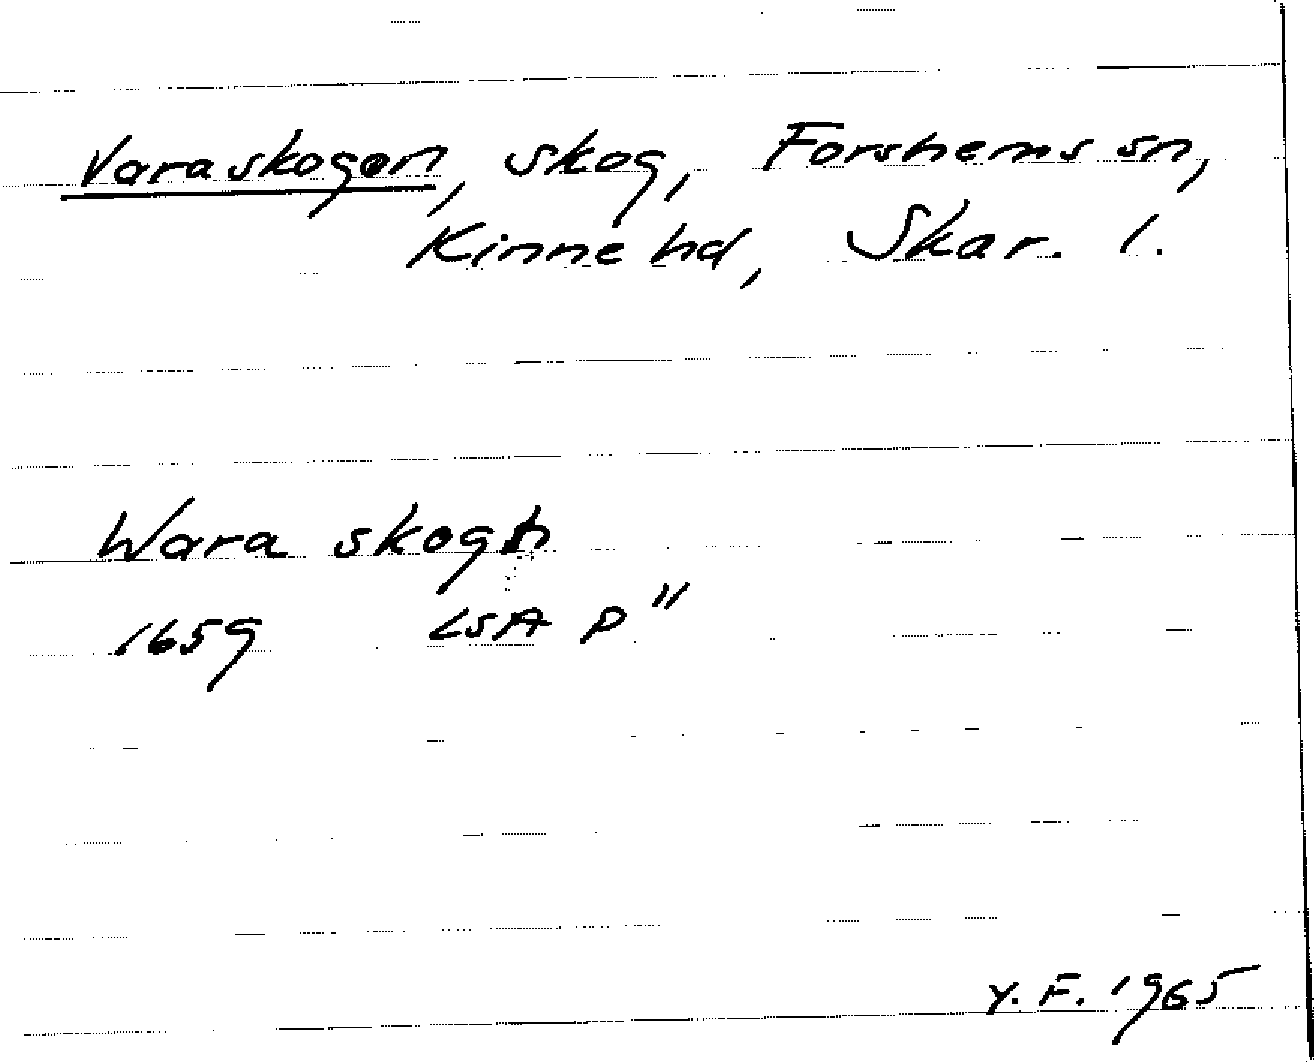 Varaskogen, skog, Forshems sn,
Kinne hd, Skar. l.
Wara skogh
1659 LSA P"
Y. F. 1965